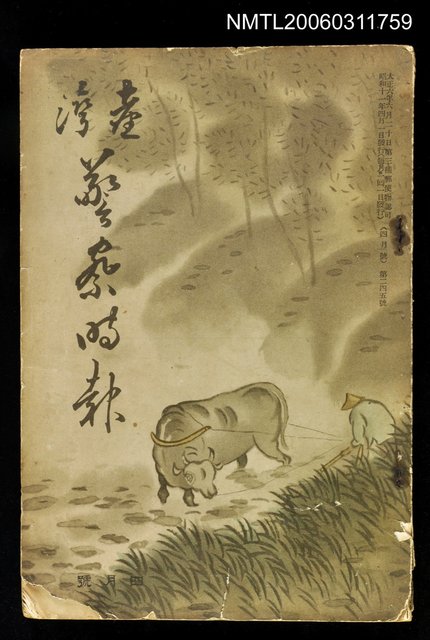 NMTL20060311759
大正六年六月二十日第三種郵便物認可
昭和十一年四月一日發行(每月一回一日發行)
(四月號) 第二四五號
臺灣
警察時報
號月四